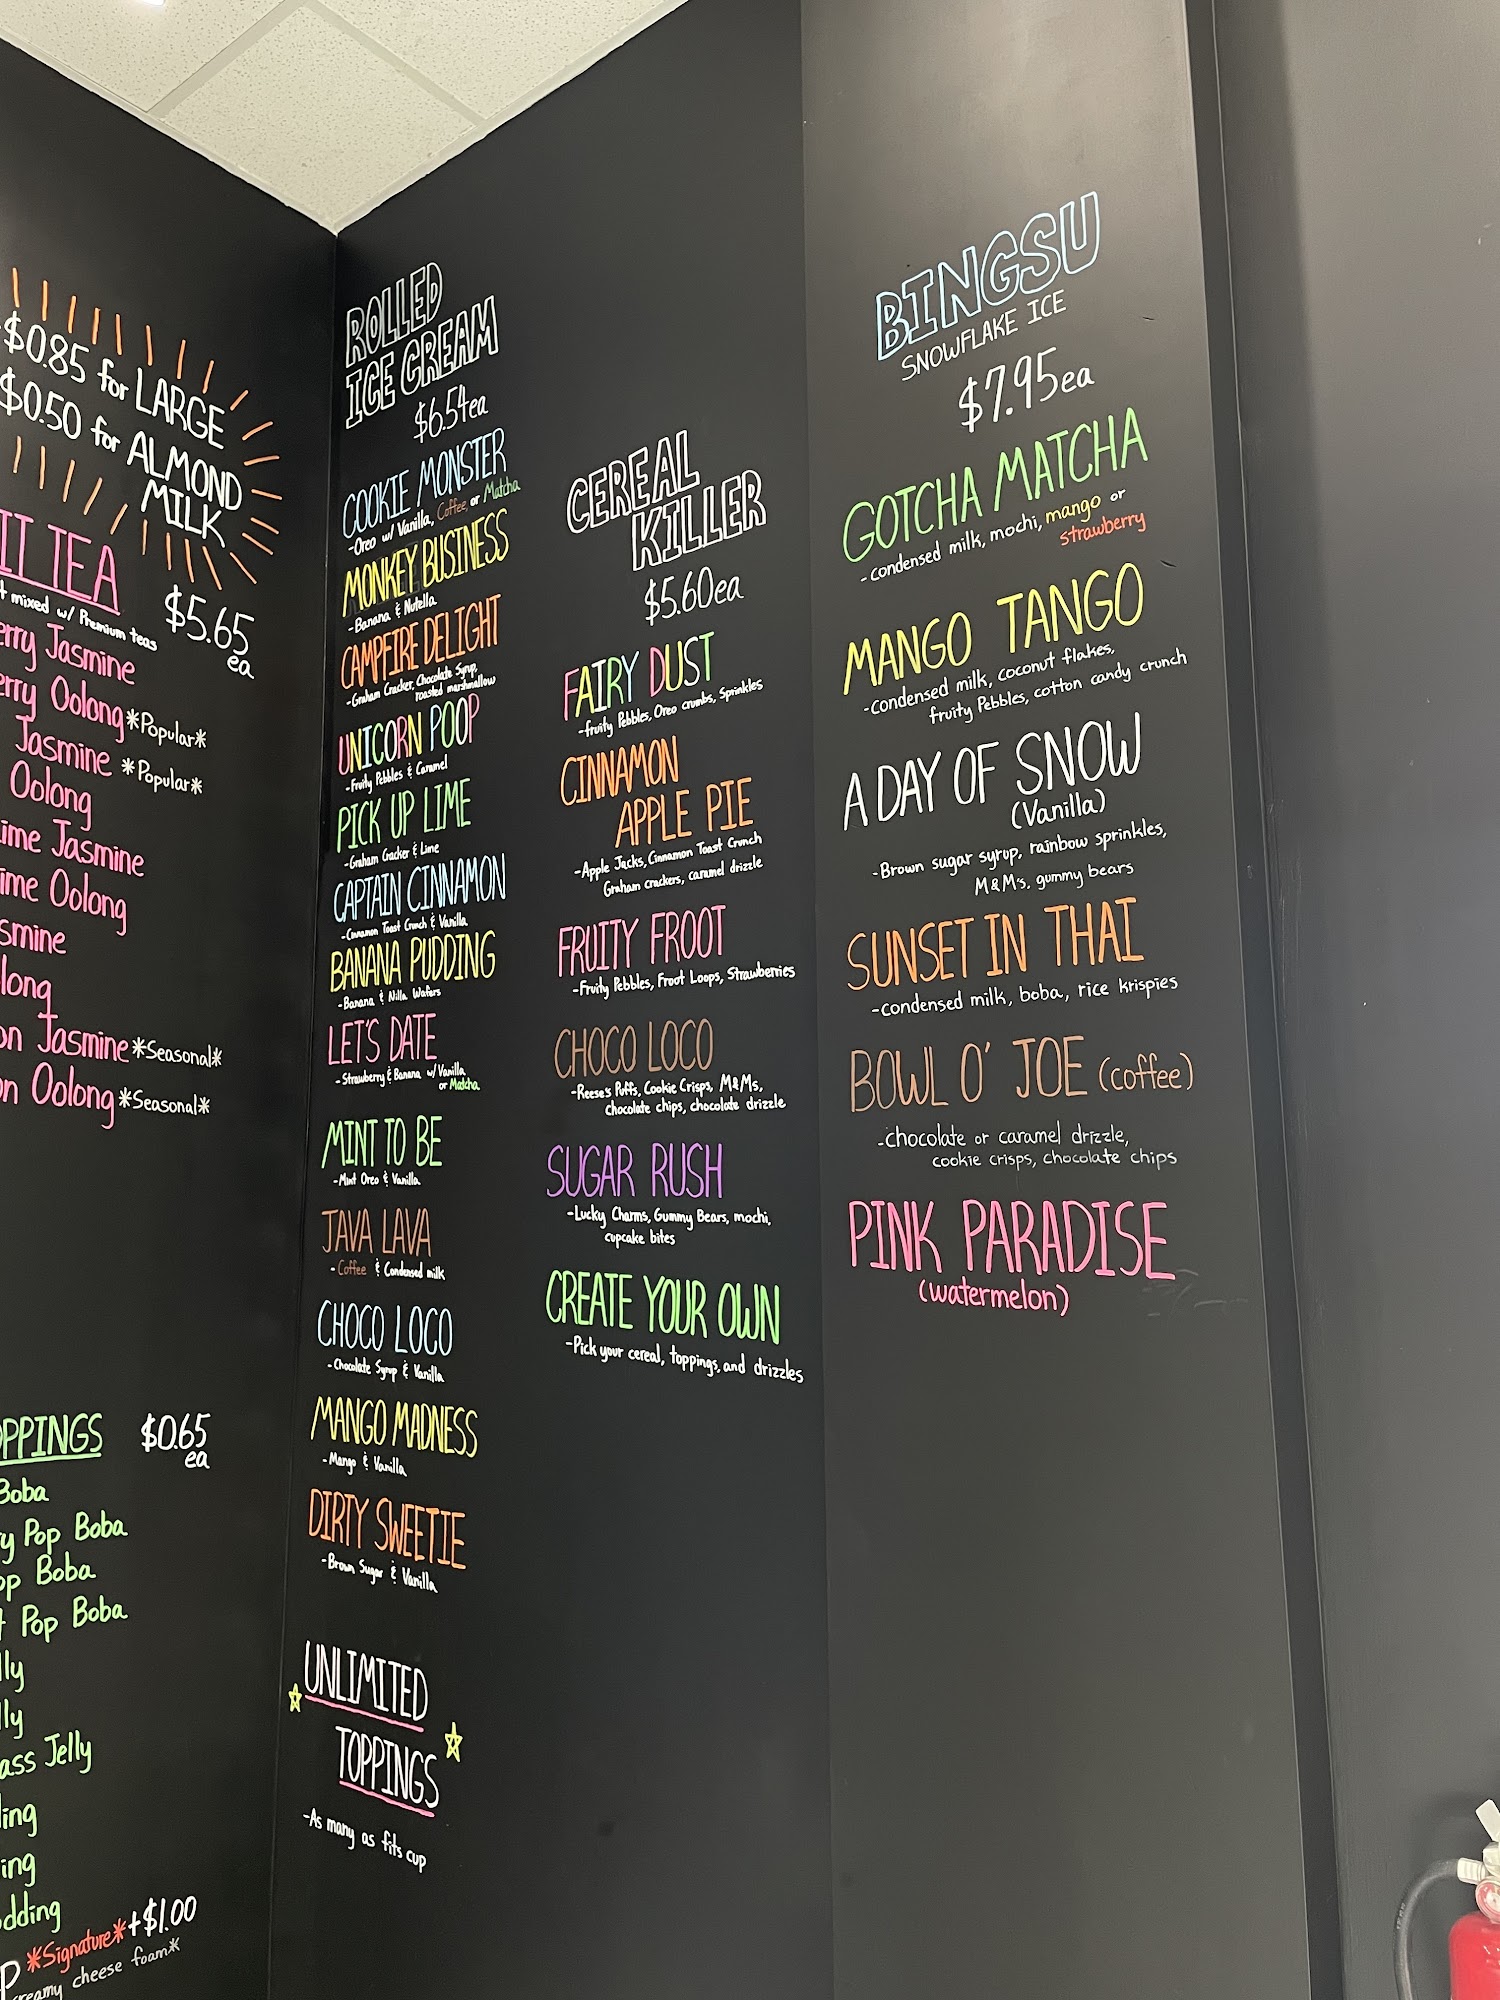 $0.85 for LARGE
$0.50 for ALMOND
MILK
TEA
$5.65
ea
mixed w/ Premium teas
Jasmine
Oolong *Popular*
Jasmine *Popular*
Oolong
Jasmine
Oolong
Jasmine *Seasonal*
Oolong *Seasonal*
$0.65
ea
Boba
Pop Boba
Boba
Pop Boba
Jelly
*Signature* +$1.00
cheese foam*
ROLLED
ICE CREAM
$6.54ea
COOKIE MONSTER
-Oreo w/ Vanilla, Coffee, or Matcha
MONKEY BUSINESS
-Banana & Nutella
CAMPFIRE DELIGHT
-Graham Cracker, Chocolate Syrup,
roasted marshmallow
UNICORN POOP
-Fruity Pebbles & Caramel
PICK UP LIME
-Graham Cracker & Lime
CAPTAIN CINNAMON
-Cinnamon Toast Crunch & Vanilla
BANANA PUDDING
-Banana & Nilla Wafers
LET'S DATE
-Strawberry & Banana w/ Vanilla
or Matcha
MINT TO BE
-Mint Oreo & Vanilla
JAVA LAVA
-Coffee & Condensed milk
CHOCO LOCO
-Chocolate Syrup & Vanilla
MANGO MADNESS
-Mango & Vanilla
DIRTY SWEETIE
-Brown Sugar & Vanilla
UNLIMITED
TOPPINGS
-As many as fits cup
CEREAL
KILLER
$5.60ea
FAIRY DUST
-fruity Pebbles, Oreo crumbs, Sprinkles
CINNAMON
APPLE PIE
-Apple Jacks, Cinnamon Toast Crunch
Graham crackers, caramel drizzle
FRUITY FROOT
-Fruity Pebbles, Froot Loops, Strawberries
CHOCO LOCO
-Reese's Puffs, Cookie Crisps, M&Ms,
chocolate chips, chocolate drizzle
SUGAR RUSH
-Lucky Charms, Gummy Bears, mochi,
cupcake bites
CREATE YOUR OWN
-Pick your cereal, toppings, and drizzles
BINGSU
SNOWFLAKE ICE
$7.95ea
GOTCHA MATCHA
-condensed milk, mochi, mango or
strawberry
MANGO TANGO
-condensed milk, coconut flakes,
fruity Pebbles, cotton candy crunch
A DAY OF SNOW
(Vanilla)
-Brown sugar syrup, rainbow sprinkles,
M&M's, gummy bears
SUNSET IN THAI
-condensed milk, boba, rice krispies
BOWL O' JOE (coffee)
-chocolate or caramel drizzle,
cookie crisps, chocolate chips
PINK PARADISE
(watermelon)